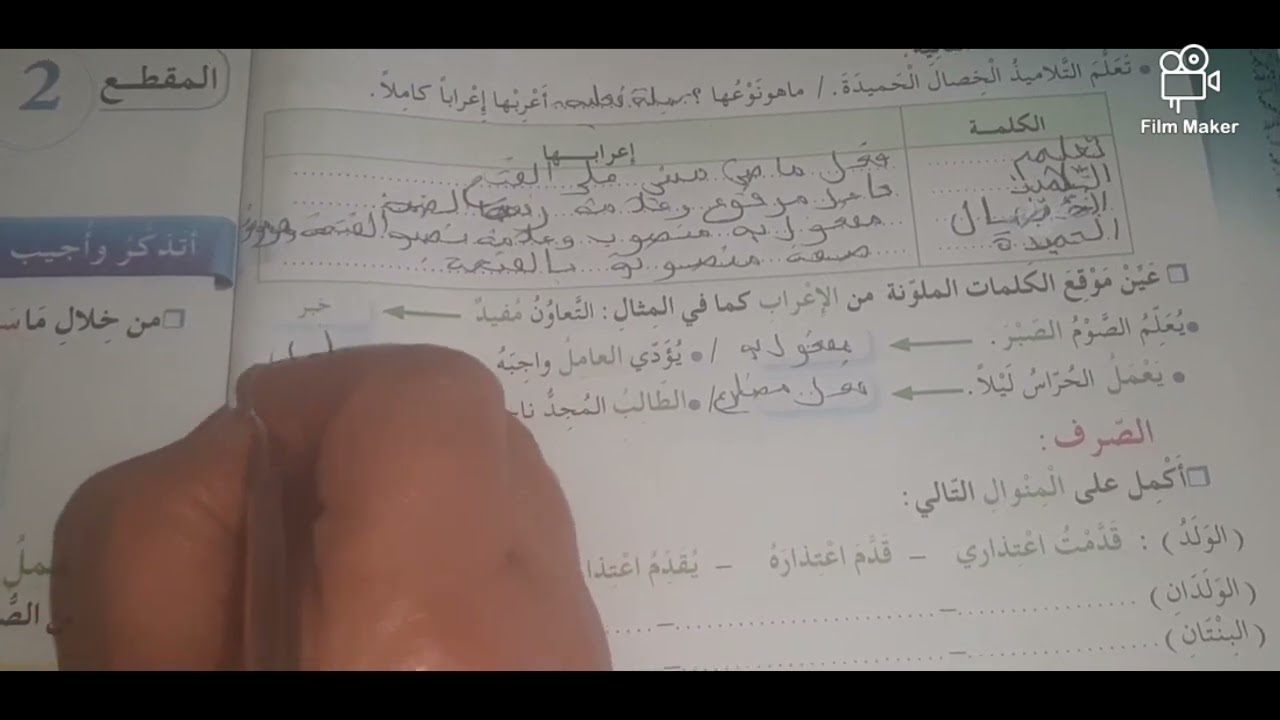 Film Maker
المقطع 2
• تَعَلَّمَ التَّلاميذُ الْخِصالَ الْحَميدَةَ. / ماهونَوْعُها ؟ جملة فعلية أعْرِبْها إعْراباً كاملاً.
الكلمة إعرابها
تعلم فعل ماضي مبني على الفتح
التلاميذ فاعل مرفوع وعلامة رفعه الضمة
الخصال مفعول به منصوب وعلامة نصبه الفتحة
الحميدة صفة منصوبة بالفتحة
أتذكّر وأجيب
من خِلالِ مَا
عَيِّنْ مَوْقِعَ الكَلمات الملوّنة من الإعْراب كما في المِثالِ : التَّعاوُنُ مُفيدٌ خبر
•يُعَلِّمُ الصَّوْمُ الصَبْرَ. مفعول به / • يُؤَدّي العاملُ واجِبَهُ
• يَعْمَلُ الحُرّاسُ لَيْلاً. فعل مضارع / • الطّالِبُ المُجِدُّ
الصّرف :
أَكْمِل على الْمِنْوالِ التّالي :
(الوَلَدُ) : قَدَّمْتُ اعْتِذاري – قَدَّمَ اعْتِذارَهُ – يُقَدِّمُ
(الوَلَدَانِ) ............ – ............ –
(البِنْتَانِ) ............ – ............ –